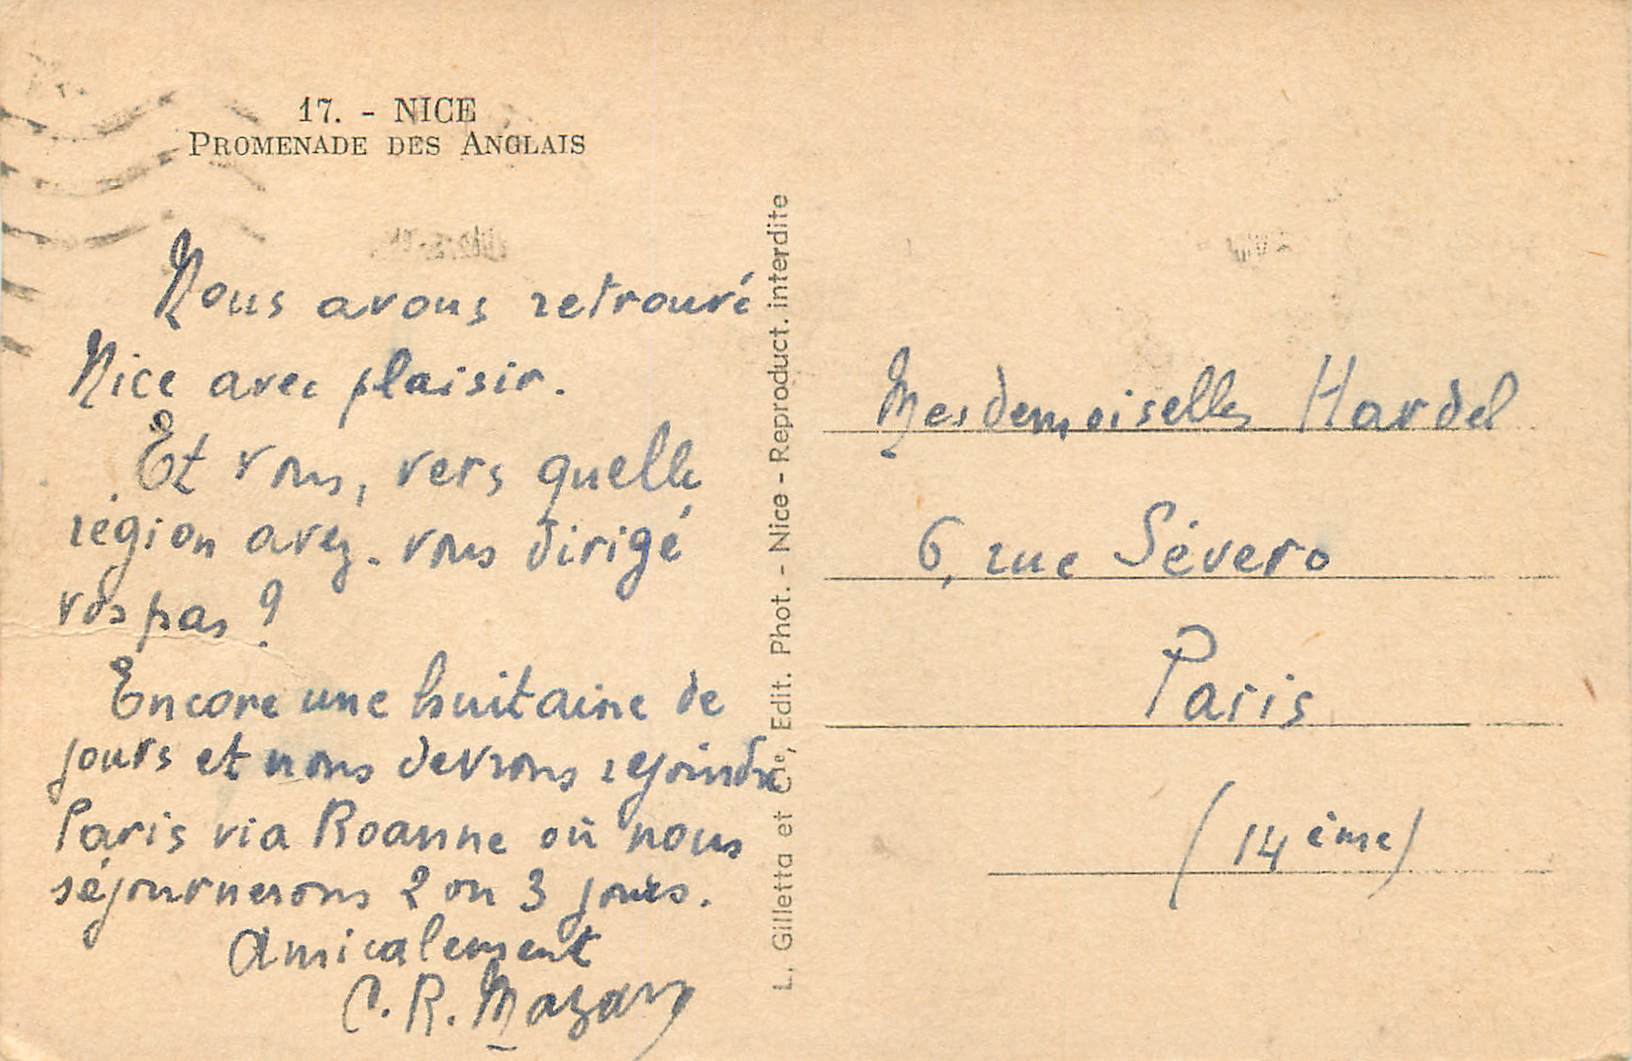 17. - NICE
PROMENADE DES ANGLAIS
Nous avons retrouvé
Nice avec plaisir.
Et vous, vers quelle
région avez-vous dirigé
vos pas ?
Encore une huitaine de
jours et nous devrons rejoindre
Paris via Roanne où nous
séjournerons 2 ou 3 jours.
Amicalement
C. R. Mazary
L. Gilletta et Cie, Edit. Phot. - Nice - Reproduct. interdite
Mesdemoiselles Hardel
6, rue Sévero
Paris
(14ème)